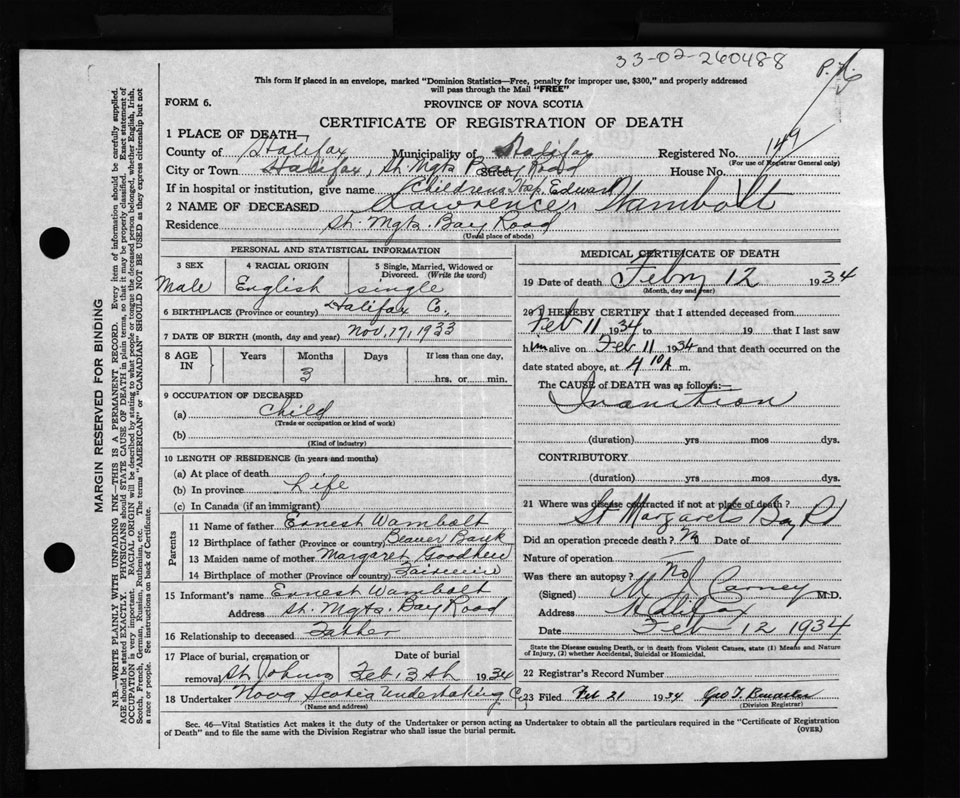 33-02-260488
P. N.S.
This form if placed in an envelope, marked "Dominion Statistics—Free, penalty for improper use, $300," and properly addressed
will pass through the Mail "FREE"
FORM 6.
PROVINCE OF NOVA SCOTIA
CERTIFICATE OF REGISTRATION OF DEATH
1 PLACE OF DEATH—
County of Halifax Municipality of Halifax Registered No. 149
(For use of Registrar General only)
City or Town Halifax, St. Mgts Bay Road Street House No.
If in hospital or institution, give name Childrens Hosp.
2 NAME OF DECEASED Lawrence Edward Wambolt
Residence St. Mgts. Bay Road
(Usual place of abode)
PERSONAL AND STATISTICAL INFORMATION
3 SEX 4 RACIAL ORIGIN 5 Single, Married, Widowed or
Divorced. (Write the word)
Male English single
6 BIRTHPLACE (Province or country) Halifax Co.,
7 DATE OF BIRTH (month, day and year) Nov. 17, 1933
8 AGE IN Years Months Days If less than one day,
3 hrs. or min.
9 OCCUPATION OF DECEASED
(a) Child
(Trade or occupation or kind of work)
(b)
(Kind of industry)
10 LENGTH OF RESIDENCE (in years and months)
(a) At place of death
(b) In province Life
(c) In Canada (if an immigrant)
Parents
11 Name of father Ernest Wambolt
12 Birthplace of father (Province or country) Beaver Bank
13 Maiden name of mother Margaret
14 Birthplace of mother (Province or country)
15 Informant's name Ernest Wambolt
Address St. Mgts. Bay Road
16 Relationship to deceased Father
17 Place of burial, cremation or Date of burial
removal St. Johns Feb 13th 1934
18 Undertaker Nova Scotia Undertaking Co
(Name and address)
MEDICAL CERTIFICATE OF DEATH
19 Date of death Febry 12 1934
(Month, day and year)
20 I HEREBY CERTIFY that I attended deceased from
Feb 11 1934 to 19 that I last saw
him alive on Feb 11 1934 and that death occurred on the
date stated above, at 4 10 A m.
The CAUSE of DEATH was as follows:—
Inanition
(duration) yrs mos dys.
CONTRIBUTORY
(duration) yrs mos dys.
21 Where was disease contracted if not at place of death?
St Margarets Bay Rd
Did an operation precede death? No Date of
Nature of operation
Was there an autopsy? No
(Signed) M. J. Carney M.D.
Address Halifax
Date Feb 12 1934
State the Disease causing Death, or in death from Violent Causes, state (1) Means and Nature
of Injury, (2) whether Accidental, Suicidal or Homicidal.
22 Registrar's Record Number
23 Filed Feb 21 1934 Geo T.
(Division Registrar)
Sec. 46—Vital Statistics Act makes it the duty of the Undertaker or person acting as Undertaker to obtain all the particulars required in the "Certificate of Registration
of Death" and to file the same with the Division Registrar who shall issue the burial permit.
(OVER)
MARGIN RESERVED FOR BINDING
N.B.—WRITE PLAINLY WITH UNFADING INK—THIS IS A PERMANENT RECORD. Every item of information should be carefully supplied.
AGE should be stated EXACTLY. PHYSICIANS should STATE CAUSE OF DEATH in plain terms, so that it may be properly classified. Exact statement of
OCCUPATION is very important. RACIAL ORIGIN will be described by stating to what people or tongue the deceased person belonged, whether English, Irish,
Scotch, French, German, Russian, Ruthenian, etc. The terms "AMERICAN" or "CANADIAN" SHOULD NOT BE USED as they express citizenship but not
a race or people. See instructions on back of Certificate.